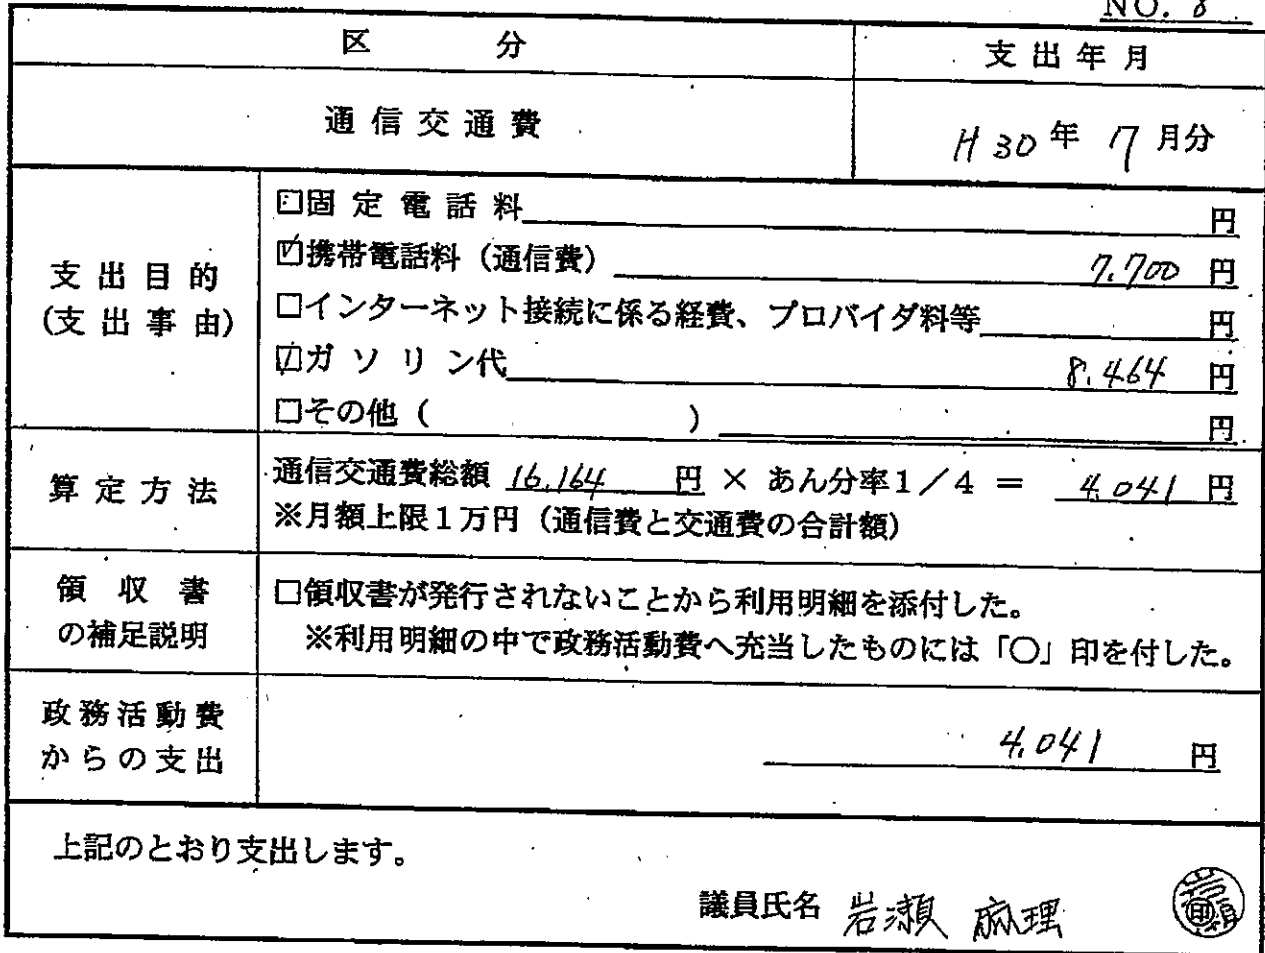 NO. 8
区 分
支出年月
通信交通費
H30年 7月分
支出目的
(支出事由)
□固定電話料 円
☑携帯電話料（通信費） 7.700 円
□インターネット接続に係る経費、プロバイダ料等 円
☑ガソリン代 8.464 円
□その他（ ） 円
算定方法
通信交通費総額 16.164 円 × あん分率1／4 ＝ 4.041 円
※月額上限1万円（通信費と交通費の合計額）
領収書
の補足説明
□領収書が発行されないことから利用明細を添付した。
※利用明細の中で政務活動費へ充当したものには「○」印を付した。
政務活動費
からの支出
4.041 円
上記のとおり支出します。
議員氏名 岩瀬 麻理